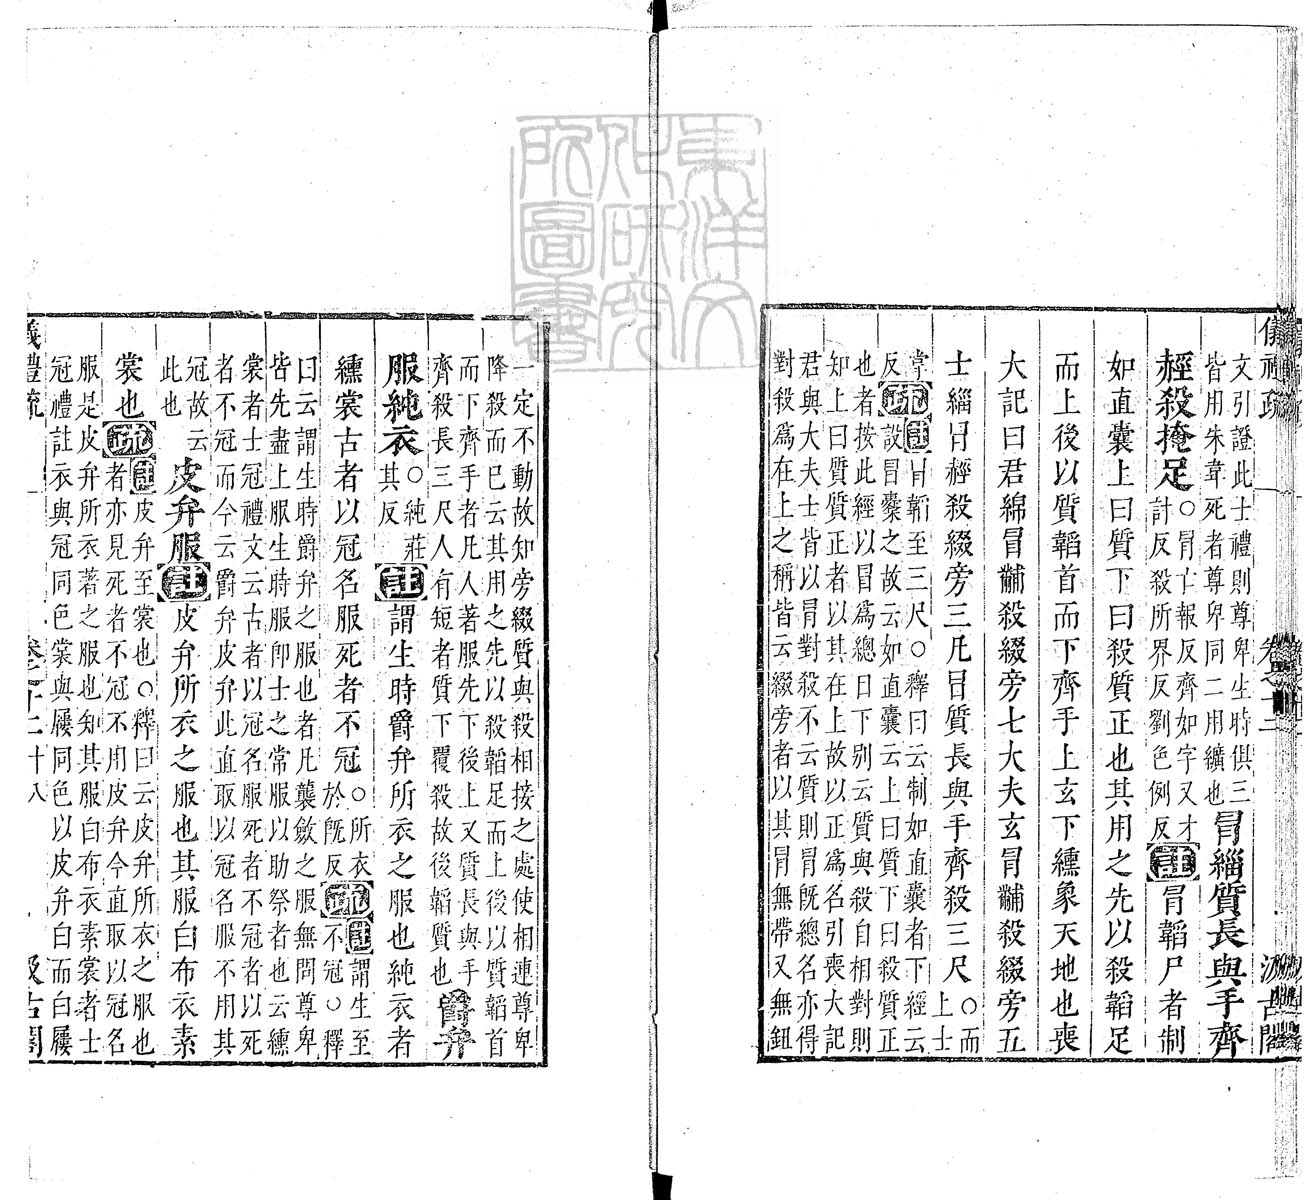 東洋文
化研究
所圖書
儀禮疏 卷之十二 汲古閣
文引證此士禮則尊卑生時俱三
皆用朱韋死者尊卑同二用纁也
冒緇質長與手齊
經殺掩足
○冒亡報反齊如字又才
計反殺所界反劉色例反
註冒韜尸者制
如直囊上曰質下曰殺質正也其用之先以殺韜足
而上後以質韜首而下齊手上玄下纁象天地也喪
大記曰君綿冒黼殺綴旁七大夫玄冒黼殺綴旁五
士緇冒經殺綴旁三凡冒質長與手齊殺三尺
○而
上士
掌
反
疏
註冒韜至三尺○釋曰云制如直囊者下經云
設冒櫜之故云如直囊云上曰質下曰殺質正
也者按此經以冒爲總目下別云質與殺自相對則
知上曰質質正者以其在上故以正爲名引喪大記
君與大夫士皆以冒對殺不云質則冒既總名亦得
對殺爲在上之稱皆云綴旁者以其冒無帶又無鈕
一定不動故知旁綴質與殺相接之處使相連尊卑
降殺而已云其用之先以殺韜足而上後以質韜首
而下齊手者凡人著服先下後上又質長與手
齊殺長三尺人有短者質下覆殺故後韜質也
爵弁
服純衣
○純莊
其反
註謂生時爵弁所衣之服也純衣者
纁裳古者以冠名服死者不冠
○所衣
於既反
疏
註謂生至
不冠○釋
曰云謂生時爵弁之服也者凡襲斂之服無問尊卑
皆先盡上服生時服卽士之常服以助祭者也云纁
裳者士冠禮文云古者以冠名服死者不冠者以死
者不冠而今云爵弁皮弁此直取以冠名服不用其
冠故云
此也
皮弁服註皮弁所衣之服也其服白布衣素
裳也疏
註皮弁至裳也○釋曰云皮弁所衣之服也
者亦見死者不冠不用皮弁今直取以冠名
服是皮弁所衣著之服也知其服白布衣素裳者士
冠禮註衣與冠同色裳與屨同色以皮弁白而白屨
儀禮疏 卷之十二 十八 汲古閣